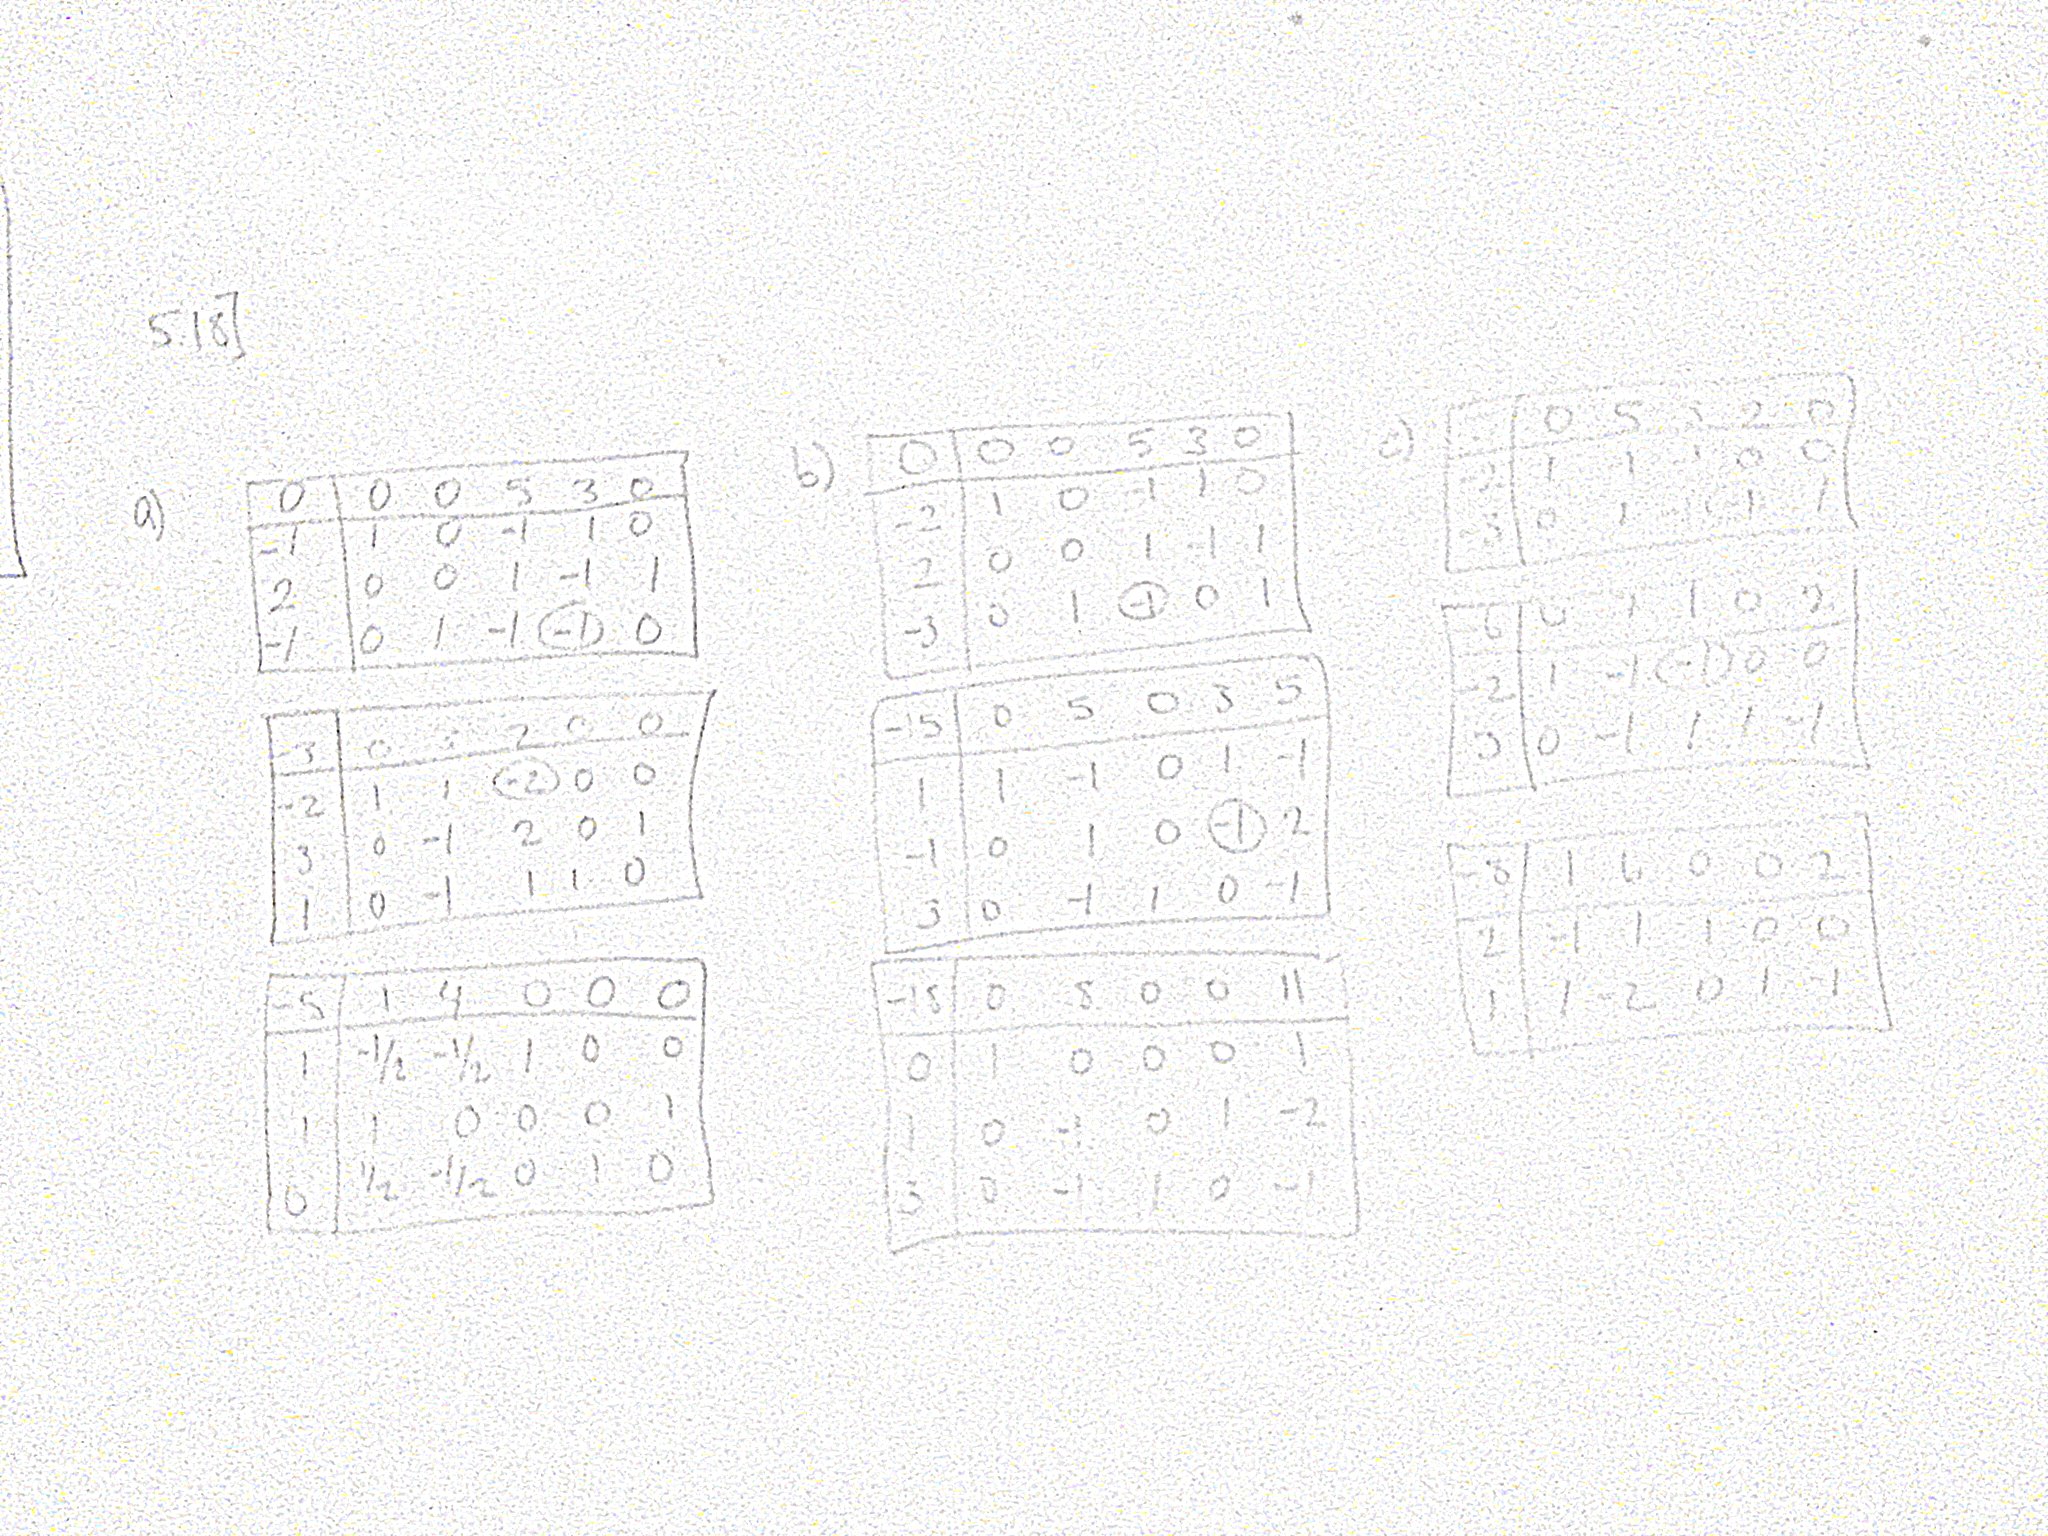 5.18]
a)
0 0 0 5 3 0
-1 1 0 -1 1 0
2 0 0 1 -1 1
-1 0 1 -1 -1 0
-3 0 3 2 0 0
-2 1 1 -2 0 0
3 0 -1 2 0 1
1 0 -1 1 1 0
-5 1 4 0 0 0
1 -1/2 -1/2 1 0 0
1 1 0 0 0 1
0 1/2 -1/2 0 1 0
b)
0 0 0 5 3 0
-2 1 0 -1 1 0
2 0 0 1 -1 1
-3 0 1 -1 0 1
-15 0 5 0 3 5
1 1 -1 0 1 -1
-1 0 1 0 -1 2
3 0 -1 1 0 -1
-18 0 8 0 0 11
0 1 0 0 0 1
1 0 -1 0 1 -2
3 0 -1 1 0 -1
c)
0 5 2 0
1 -1 0 0
0 1 -1 -1 1
-6 0 1 0 2
-2 1 -1 -1 0 0
3 0 -1 1 1 -1
-8 1 6 0 0 2
2 -1 1 1 0 0
1 1 -2 0 1 -1